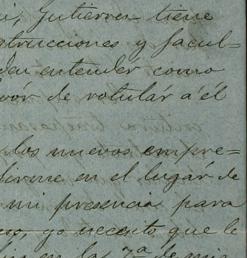 Gutierres tiene
strucciones y facul-
entender como
de rotulár a él
los nuevos empre-
firme en el lugár de
mi presencia para
yo necesito que le
en las 7ª de mis